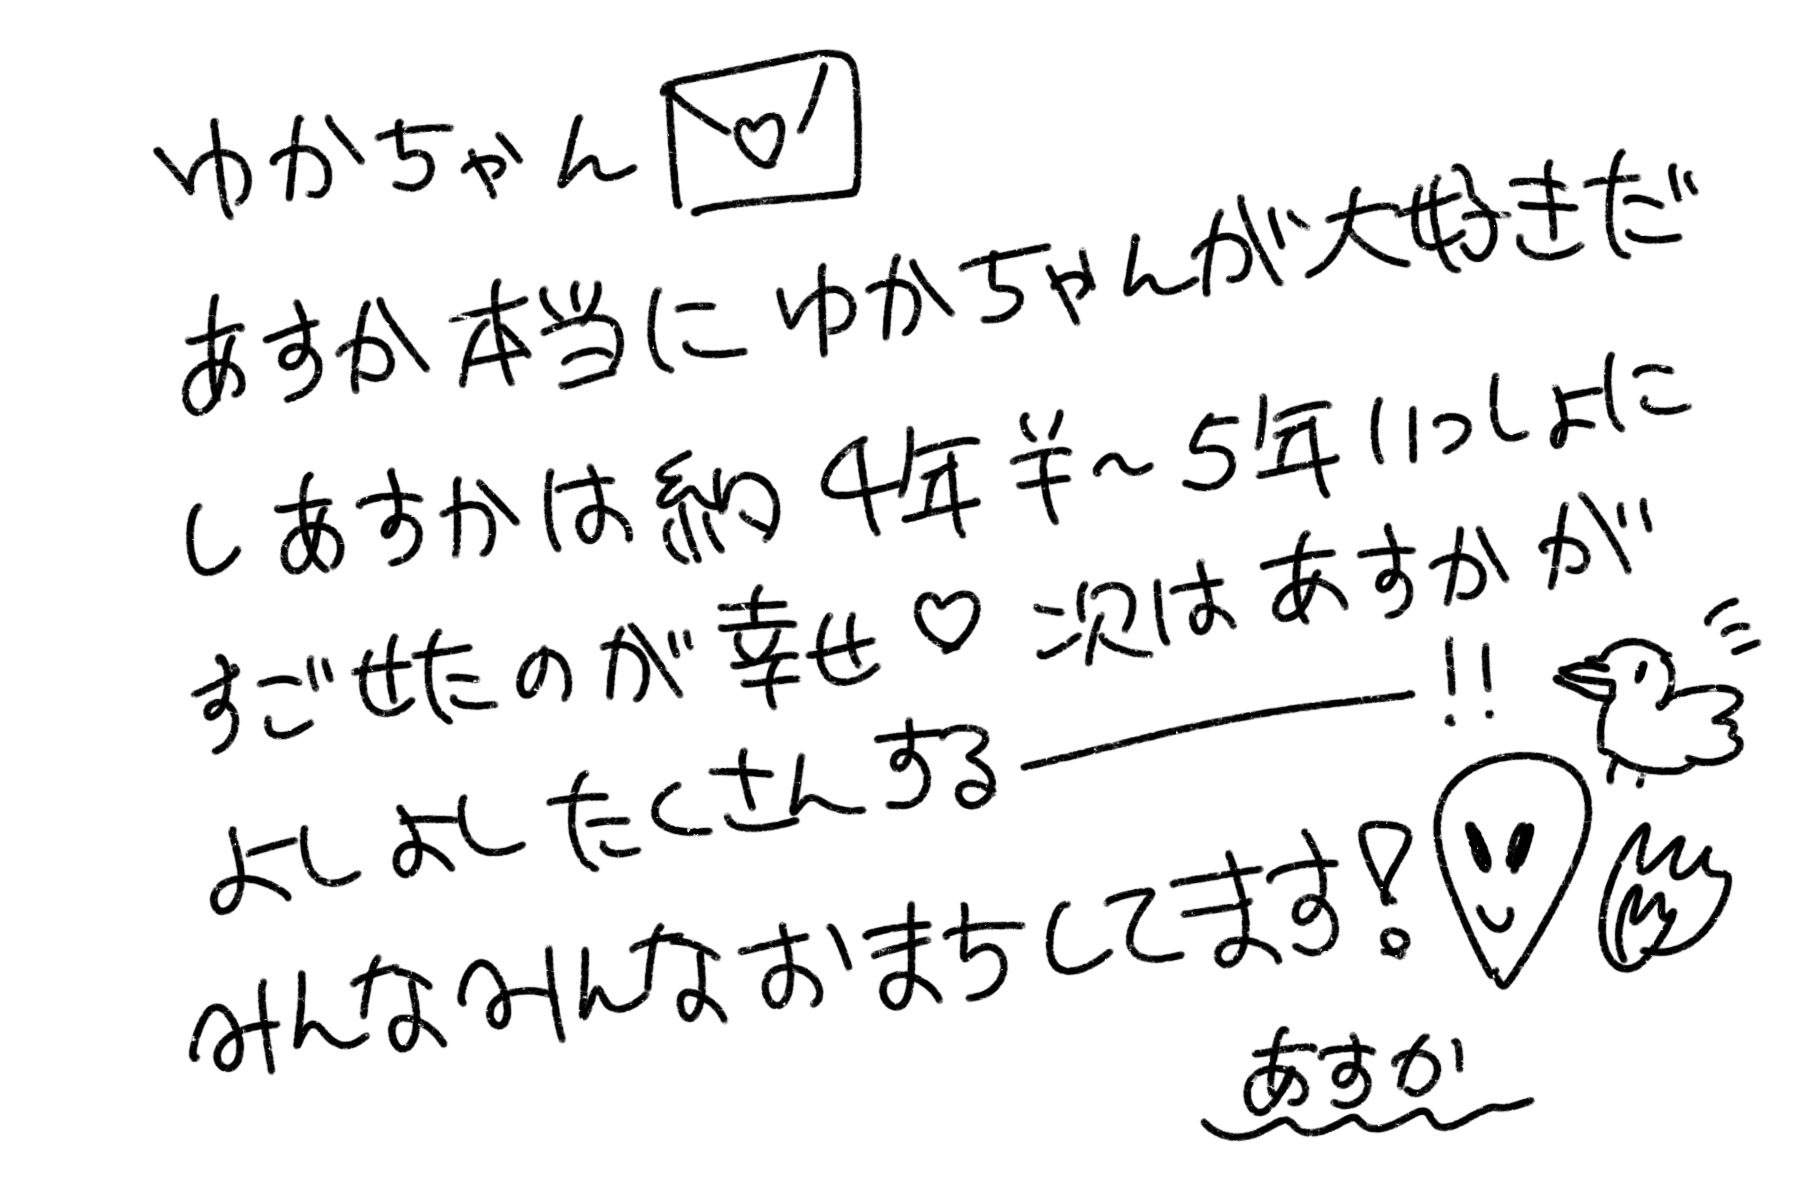 ゆかちゃん
あすか本当にゆかちゃんが大好きだ
しあすかは納4年半～5年いっしょに
すごせたのが幸せ♡次はあすかが
よしよしたくさんする―――!!
みんなみんなおまちしてます!
あすか